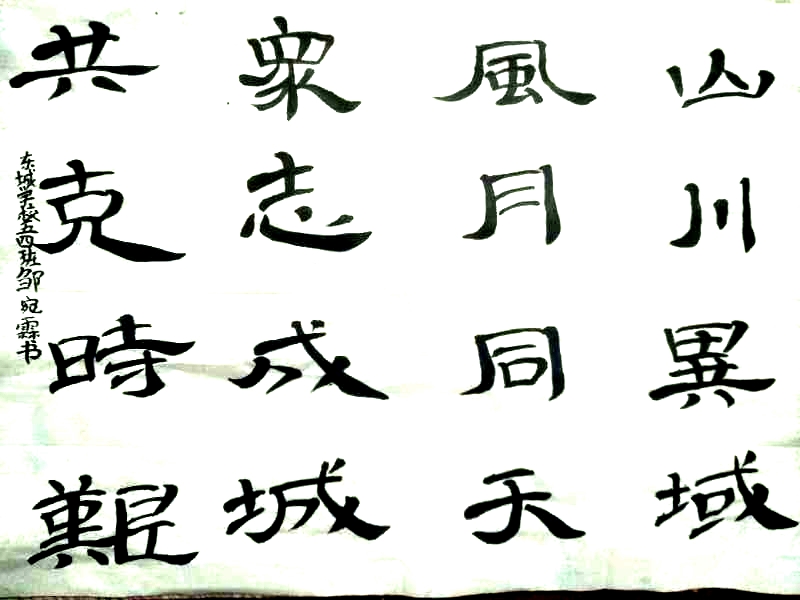 山川異域
風月同天
眾志成城
共克時艱
东城学校五四班邹宛霖书